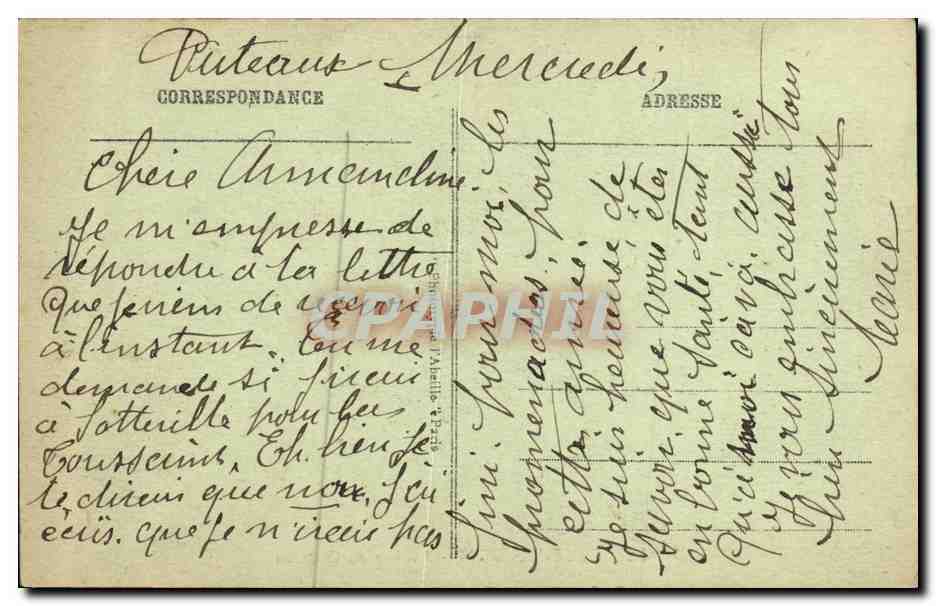 Puteaux Mercredi
CORRESPONDANCE
ADRESSE
Chère Armandine.
Je m'empresse de
répondre à la lettre
que je viens de recevoir
à l'instant. tu me
demande si j'irai
à Sotteville pour las
Toussaint. Eh bien Je
te dirai que non. J'ai
écris. que Je n'irai pas
fini pour moi les
promenades, pour
cette année.
Je suis heureuse de
savoir que vous êtes
en bonne santé, tant
qu'à moi ca va. aussi
Je vous embrasse tous
bien sincèrement
Marie
Phototypie "l'Abeille" Paris
EPAPHIL